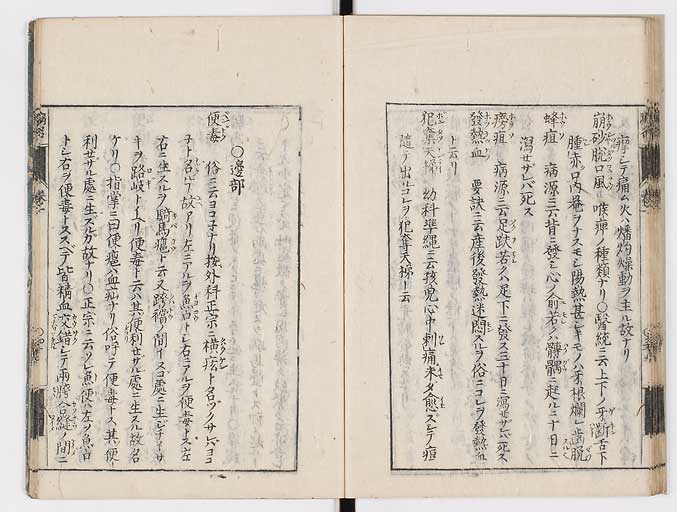 痺シテ痛ム火ハ燔灼燥動ヲ主ル故ナリ
崩砂脱口風 喉痺ノ種類ナリ○醫統ニ云上下ノ牙齗舌下
腫赤口内庵ヲナスモシ陽熱甚シキモノハ牙根爛レ歯脱
蜂疽 病源ニ云背ニ發シ心ノ俞若クハ髆髃ニ起ル三十日ニ
瀉セザレバ死ス
病源ニ云足趺若クハ足下ニ發ス三十日ニ瀉セザレバ死ス
發熱血 要訣ニ云産後發熱迷悶スルヲ俗ニコレヲ發熱血
ト云リ
犯奪天梯 幼科準繩ニ云孩兒心中刺痛未タ愈ズシテ痘
隨テ出ルコレヲ犯奪天梯ト云
○邊部
便毒 俗ニ云ヨコネナリ按外科正宗ニ横痃ト名ツクサレバヨコ
子ト名ルナ故アリ左ニアルヲ魚口トシ右ニアルヲ便毒トス左
右ニ生スルヲ騎馬癰ト云又跨襠ノ間イマダ處ニ生シ
キヲ路岐ト云リ便毒ト云ハ其便利セザル處ニ生スル故名
ケリ○指掌ニ曰便癰ハ血疝ナリ俗呼テ便毒トス其便
利セザル處ニ生ズルガ故ナリ○正宗ニ云ソレ魚便ハ左ヲ魚口
トシ右ヲ便毒トススベテ皆精血交錯シテ兩胯合縫ノ間ニ